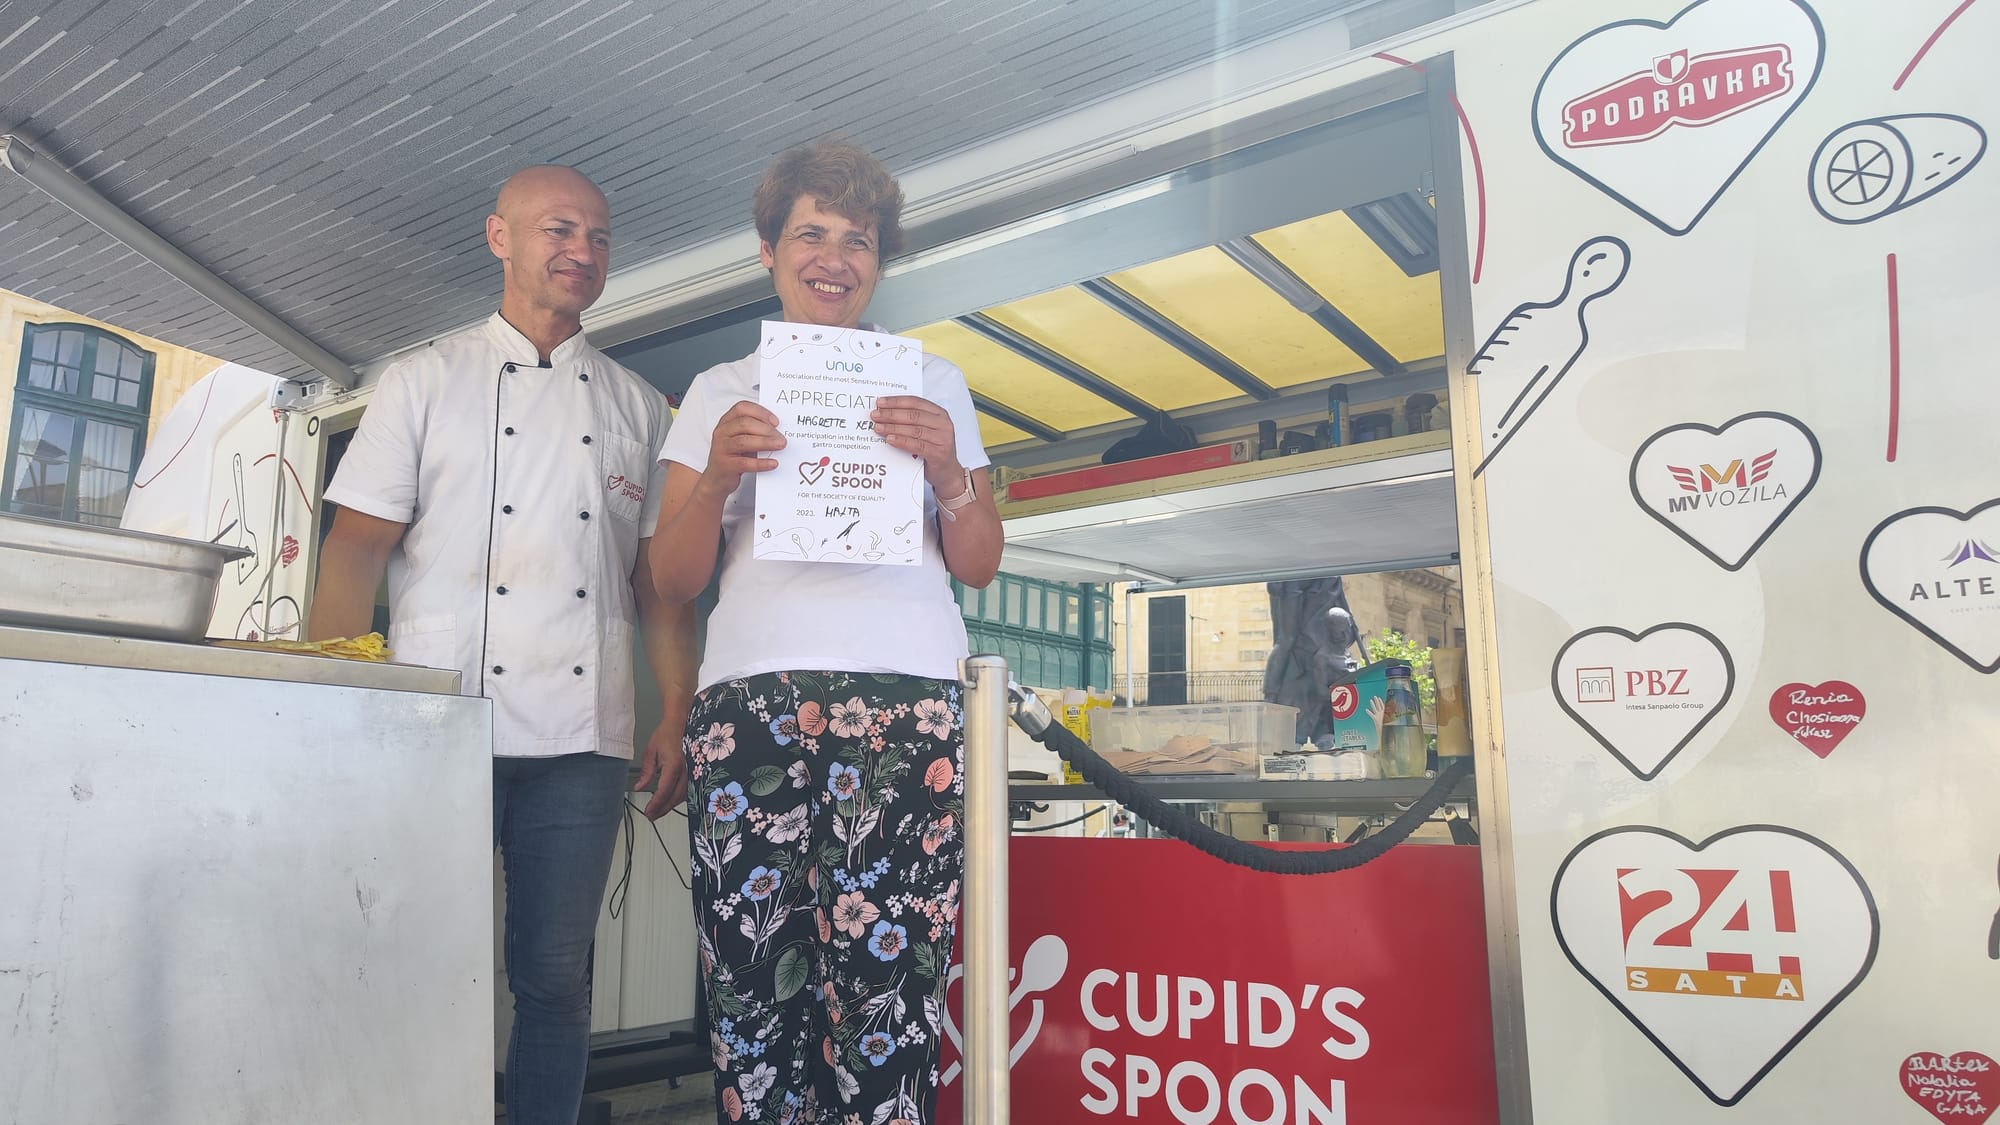 PODRAVKA
unuo
Association of the most Sensitive in training
APPRECIATI
MAGRETTE XER
For participation in the first Europ
gastro competition
CUPID'S
SPOON
FOR THE SOCIETY OF EQUALITY
2023. MALTA
CUPID'S
SPOON
MV VOZILA
ALTE
PBZ
Intesa Sanpaolo Group
Renia
Chosiaora
Łukasz
24
SATA
CUPID'S
SPOON
BARtek
Natalia
EDYTA
GABA